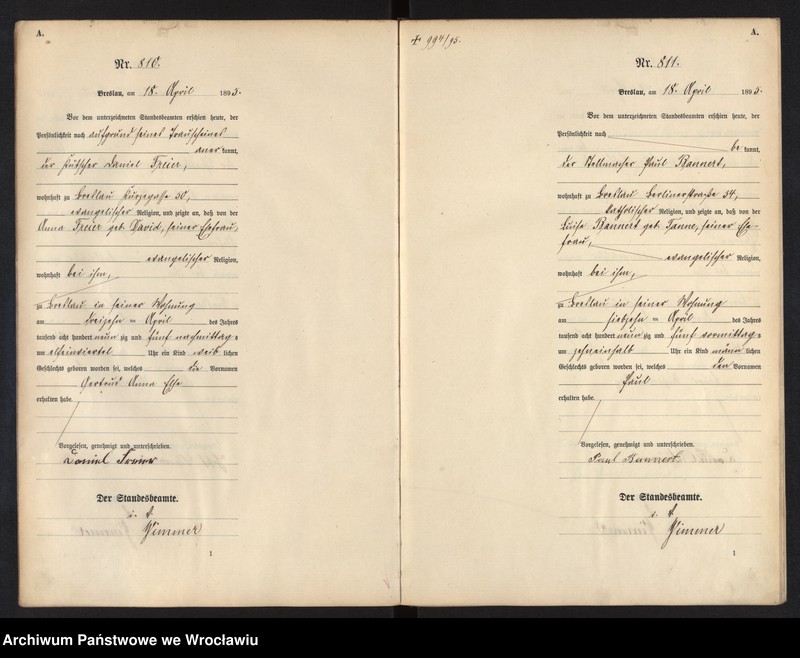 A.
Nr. 810.
Breslau, am 18. April 1895.
Vor dem unterzeichneten Standesbeamten erschien heute, der
Persönlichkeit nach aufgrund seines Trauscheines
aner kannt,
der Kutscher Daniel Freier,
wohnhaft zu Breslau Kurzegasse 50,
evangelischer Religion, und zeigte an, daß von der
Anna Freier geb. David, seiner Ehefrau,
evangelischer Religion,
wohnhaft bei ihm,
zu Breslau in seiner Wohnung
am dreizehn = April des Jahres
tausend acht hundert neun zig und fünf nachmittag s
um einviertel Uhr ein Kind weib lichen
Geschlechts geboren worden sei, welches die Vornamen
Gertrud Anna Else
erhalten habe.
Vorgelesen, genehmigt und unterschrieben.
Daniel Freier
Der Standesbeamte.
i. V.
1
✝ 994/95.
A.
Nr. 811.
Breslau, am 18. April 1895.
Vor dem unterzeichneten Standesbeamten erschien heute, der
Persönlichkeit nach
be kannt,
der Stellmacher Paul Bannert,
wohnhaft zu Breslau Berlinerstraße 54,
katholischer Religion, und zeigte an, daß von der
Luise Bannert geb. Tanne, seiner Ehe-
frau,
evangelischer Religion,
wohnhaft bei ihm,
zu Breslau in seiner Wohnung
am siebzehn = April des Jahres
tausend acht hundert neun zig und fünf vormittag s
um zehneinhalb Uhr ein Kind männ lichen
Geschlechts geboren worden sei, welches den Vornamen
Paul
erhalten habe.
Vorgelesen, genehmigt und unterschrieben.
Paul Bannert
Der Standesbeamte.
i. V.
1
Archiwum Państwowe we Wrocławiu